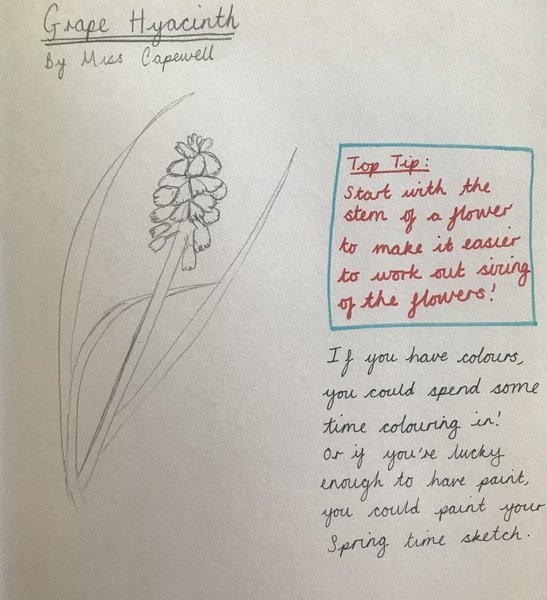 Grape Hyacinth
By Miss Capewell
Top Tip:
Start with the
stem of a flower
to make it easier
to work out sizing
of the flowers!
If you have colours,
you could spend some
time colouring in!
Or if you're lucky
enough to have paint,
you could paint your
Spring time sketch.